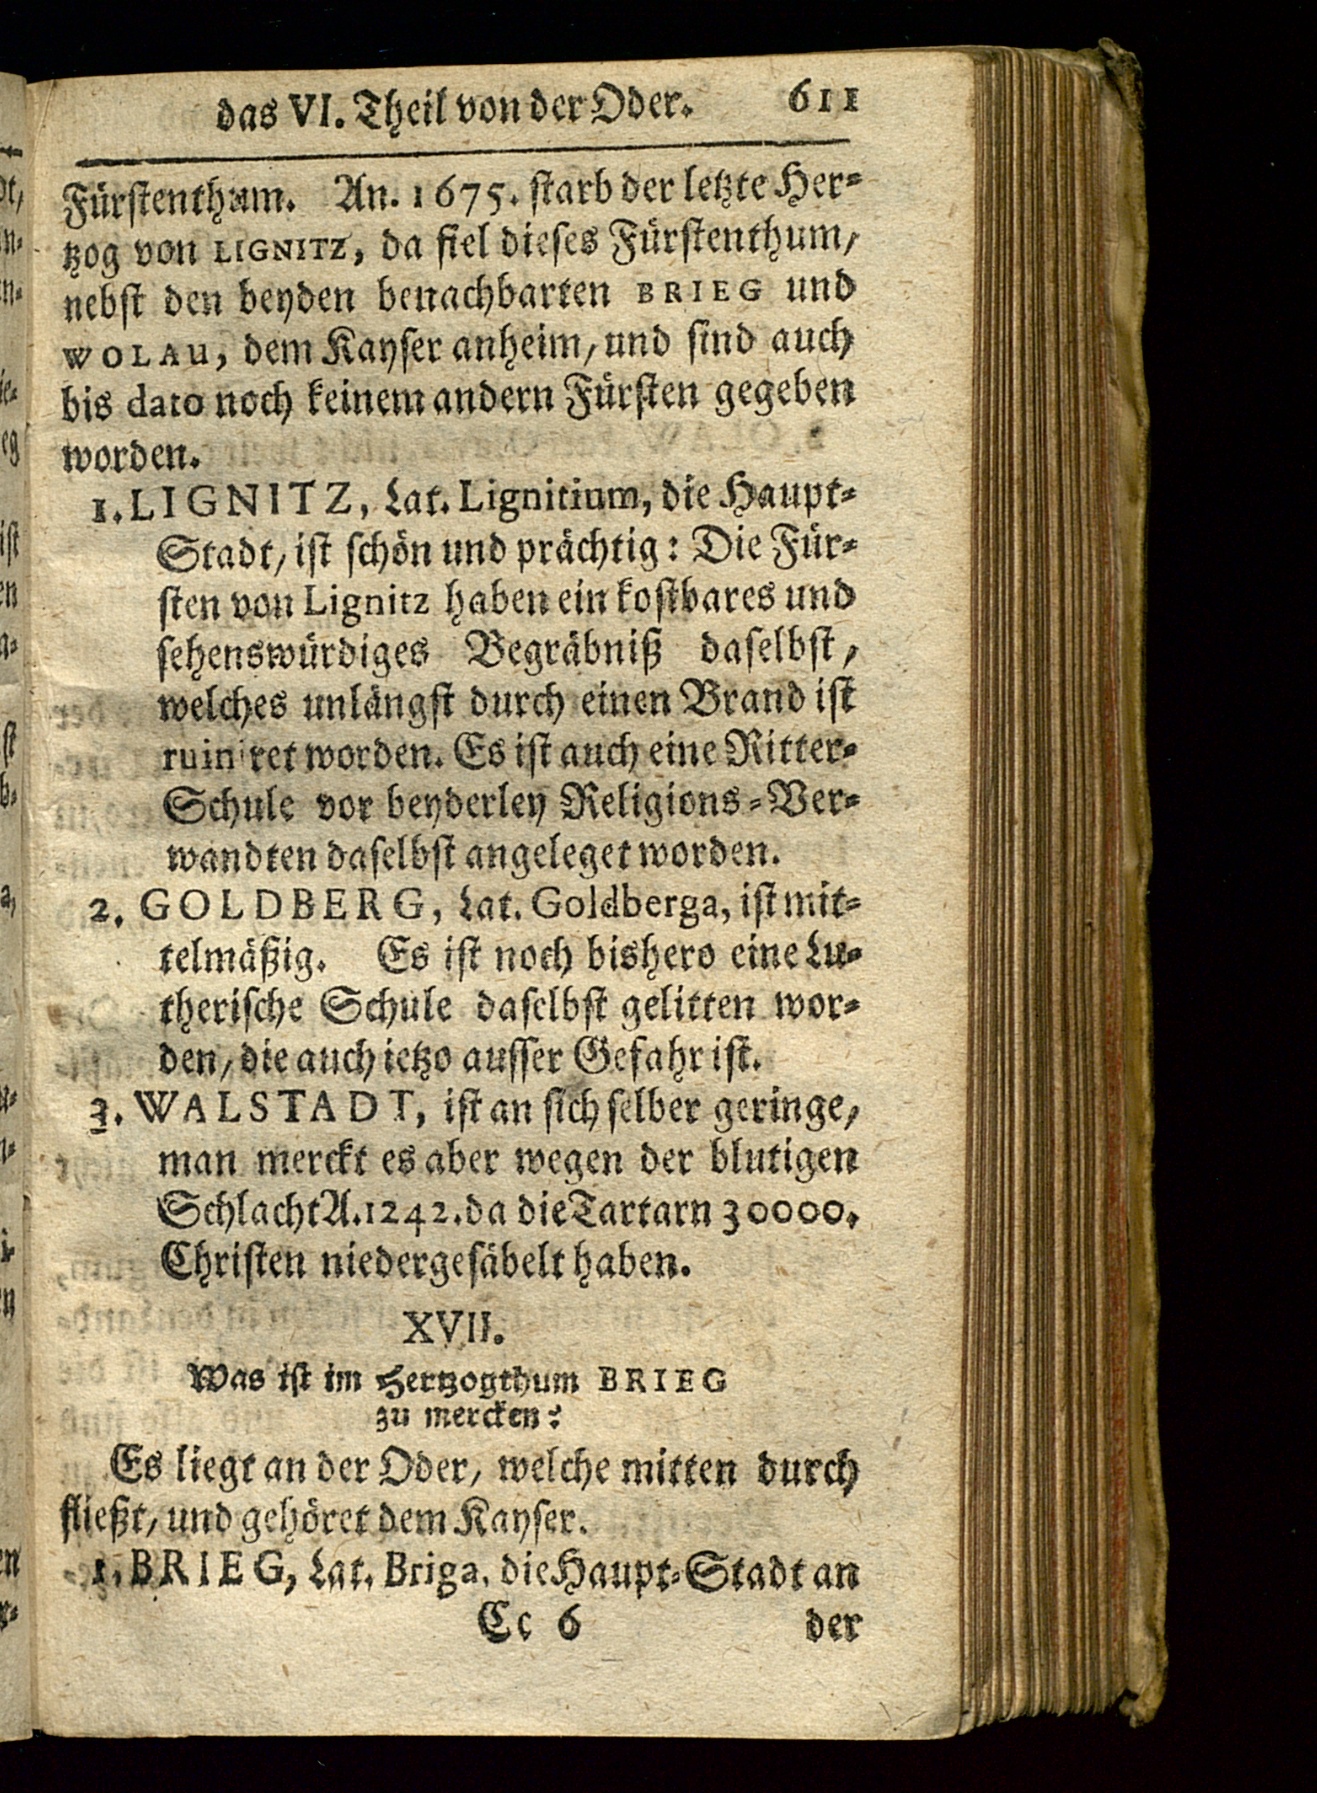 das VI. Theil von der Oder. 611
Fürstenthum. An. 1675. starb der letzte Her-
tzog von LIGNITZ, da fiel dieses Fürstenthum,
nebst den beyden benachbarten BRIEG und
WOLAU, dem Kayser anheim, und sind auch
bis dato noch keinem andern Fürsten gegeben
worden.
1. LIGNITZ, Lat. Lignitium, die Haupt-
Stadt, ist schön und prächtig: Die Für-
sten von Lignitz haben ein kostbares und
sehenswürdiges Begräbniß daselbst,
welches unlängst durch einen Brand ist
ruiniret worden. Es ist auch eine Ritter-
Schule vor beyderley Religions-Ver-
wandten daselbst angeleget worden.
2. GOLDBERG, Lat. Goldberga, ist mit-
telmäßig. Es ist noch bishero eine Lu-
therische Schule daselbst gelitten wor-
den, die auch ietzo ausser Gefahr ist.
3. WALSTADT, ist an sich selber geringe,
man merckt es aber wegen der blutigen
Schlacht A. 1242. da die Tartarn 30000.
Christen niedergesäbelt haben.
XVII.
Was ist im Hertzogthum BRIEG
zu mercken?
Es liegt an der Oder, welche mitten durch
fließt, und gehöret dem Kayser.
1. BRIEG, Lat. Briga, die Haupt-Stadt an
Cc 6 der